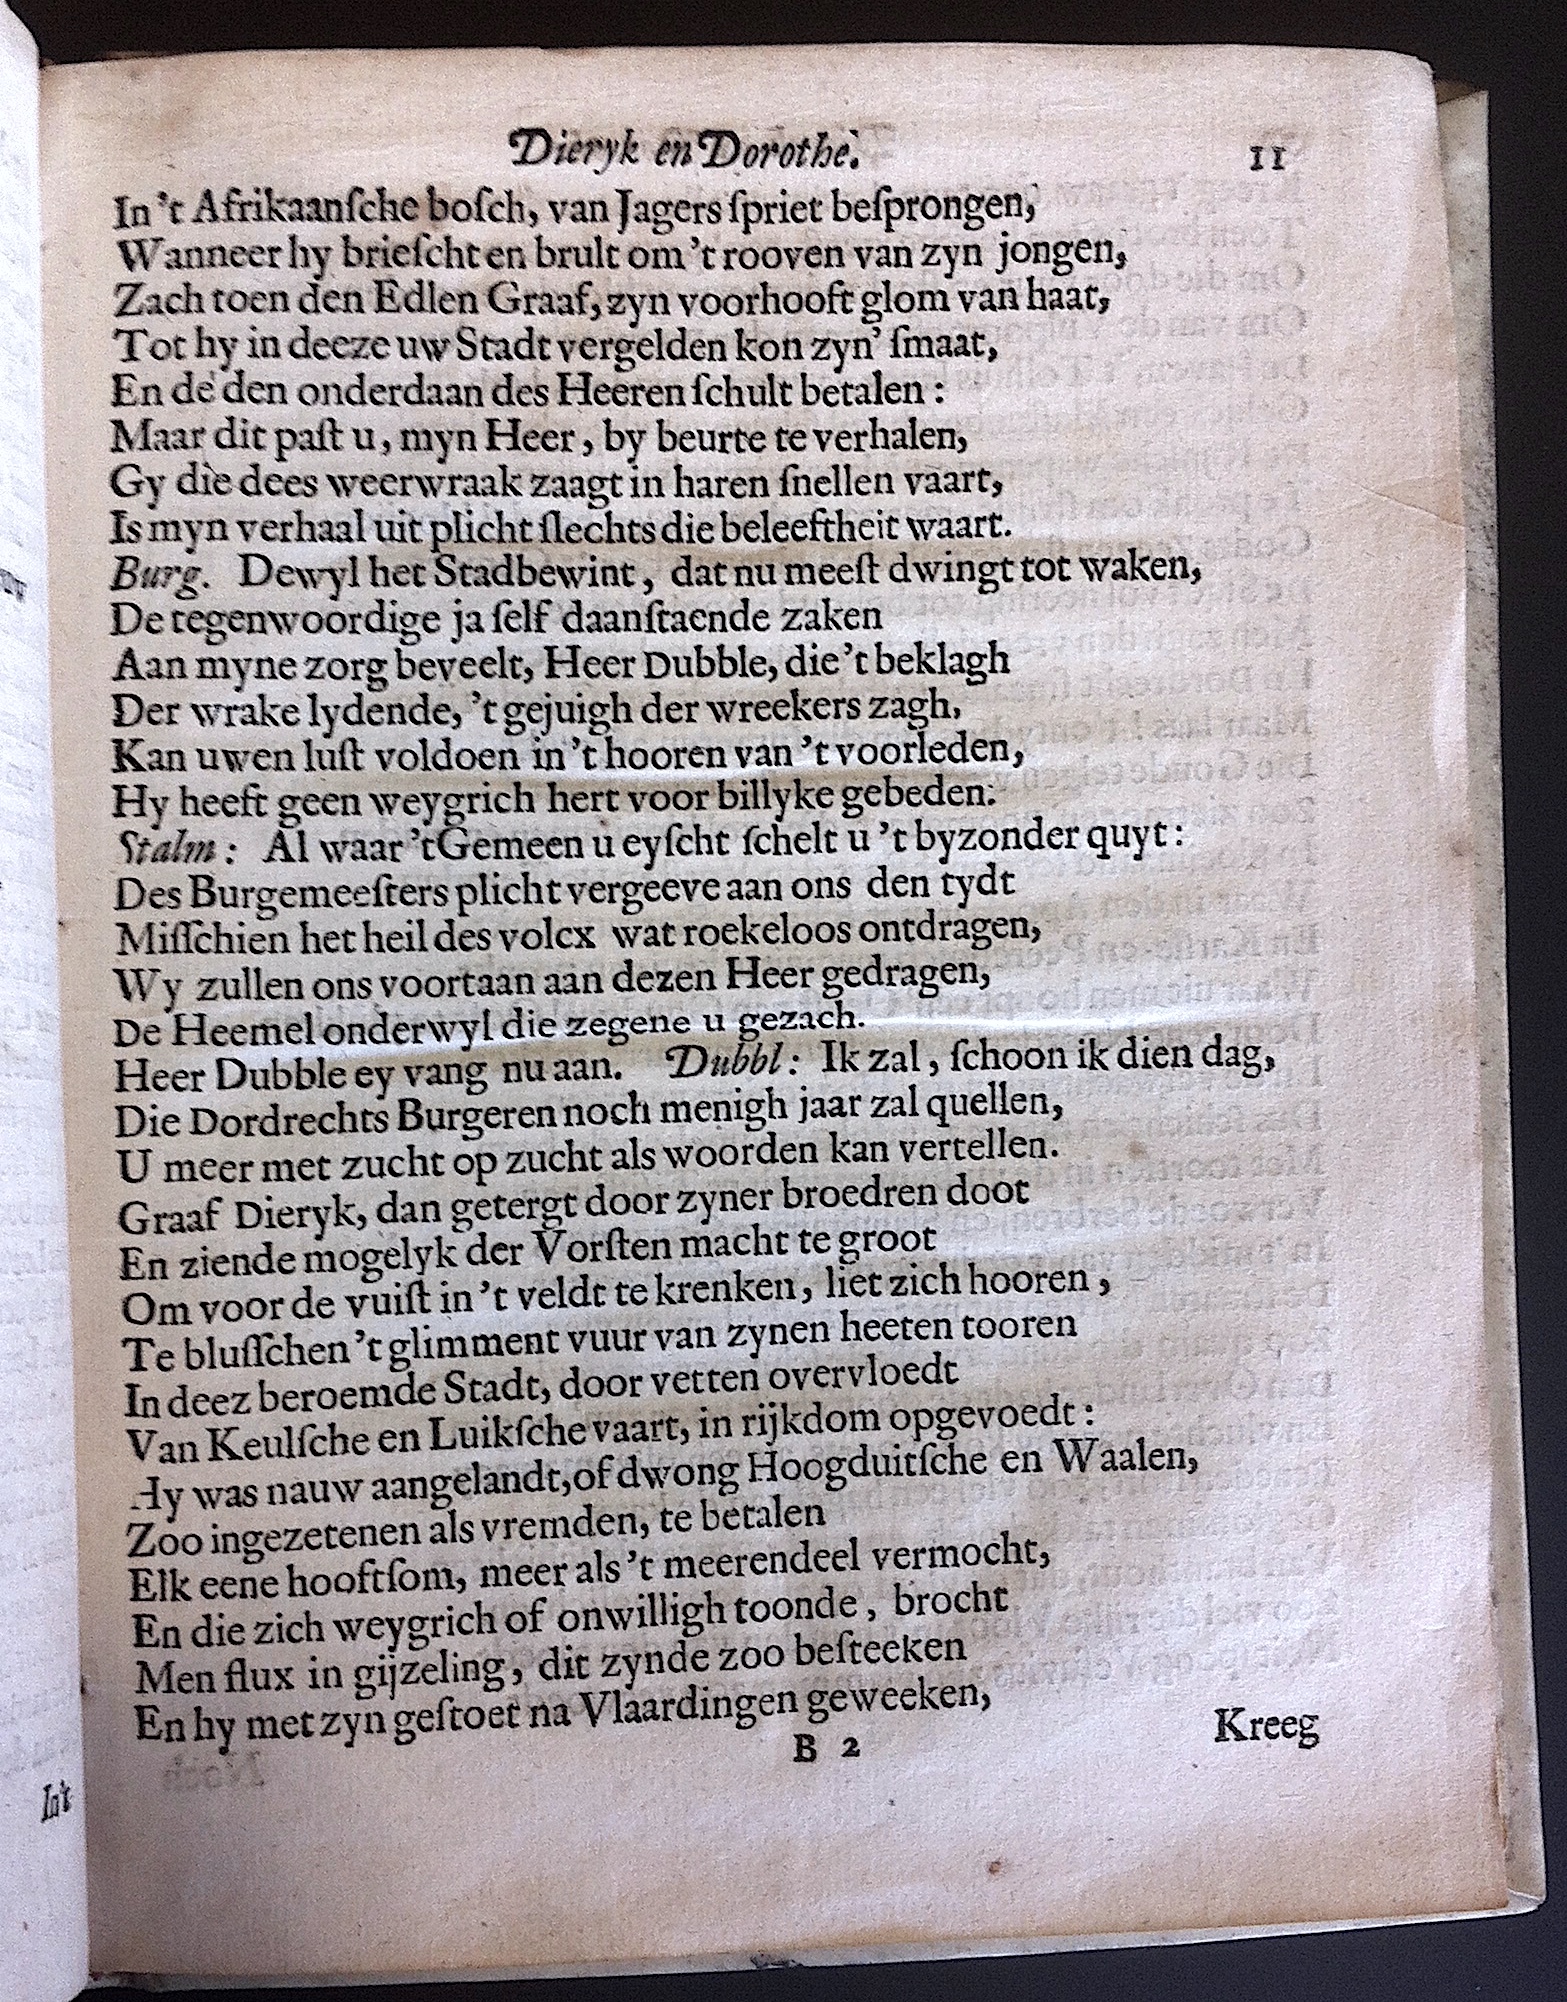 Dieryk en Dorothe. 11
In 't Afrikaanſche boſch, van Jagers ſpriet beſprongen,
Wanneer hy brieſcht en brult om 't rooven van zyn jongen,
Zach toen den Edlen Graaf, zyn voorhooft glom van haat,
Tot hy in deeze uw Stadt vergelden kon zyn' ſmaat,
En de' den onderdaan des Heeren ſchult betalen:
Maar dit paſt u, myn Heer, by beurte te verhalen,
Gy die dees weerwraak zaagt in haren ſnellen vaart,
Is myn verhaal uit plicht ſlechts die beleeftheit waart.
Burg. Dewyl het Stadbewint, dat nu meeſt dwingt tot waken,
De tegenwoordige ja ſelf daanſtaende zaken
Aan myne zorg beveelt, Heer Dubble, die 't beklagh
Der wrake lydende, 't gejuigh der wreekers zagh,
Kan uwen luſt voldoen in 't hooren van 't voorleden,
Hy heeft geen weygrich hert voor billyke gebeden.
Stalm: Al waar 't Gemeen u eyſcht ſchelt u 't byzonder quyt:
Des Burgemeeſters plicht vergeeve aan ons den tydt
Miſſchien het heil des volcx wat roekeloos ontdragen,
Wy zullen ons voortaan aan dezen Heer gedragen,
De Heemel onderwyl die zegene u gezach.
Heer Dubble ey vang nu aan. Dubbl: Ik zal, ſchoon ik dien dag,
Die Dordrechts Burgeren noch menigh jaar zal quellen,
U meer met zucht op zucht als woorden kan vertellen.
Graaf Dieryk, dan getergt door zyner broedren doot
En ziende mogelyk der Vorſten macht te groot
Om voor de vuiſt in 't veldt te krenken, liet zich hooren,
Te bluſſchen 't glimment vuur van zynen heeten tooren
In deez beroemde Stadt, door vetten overvloedt
Van Keulſche en Luikſche vaart, in rijkdom opgevoedt:
Hy was nauw aangelandt, of dwong Hoogduitſche en Waalen,
Zoo ingezetenen als vremden, te betalen
Elk eene hooftſom, meer als 't meerendeel vermocht,
En die zich weygrich of onwilligh toonde, brocht
Men flux in gijzeling, dit zynde zoo beſteeken
En hy met zyn geſtoet na Vlaardingen geweeken,
B 2 Kreeg
In't